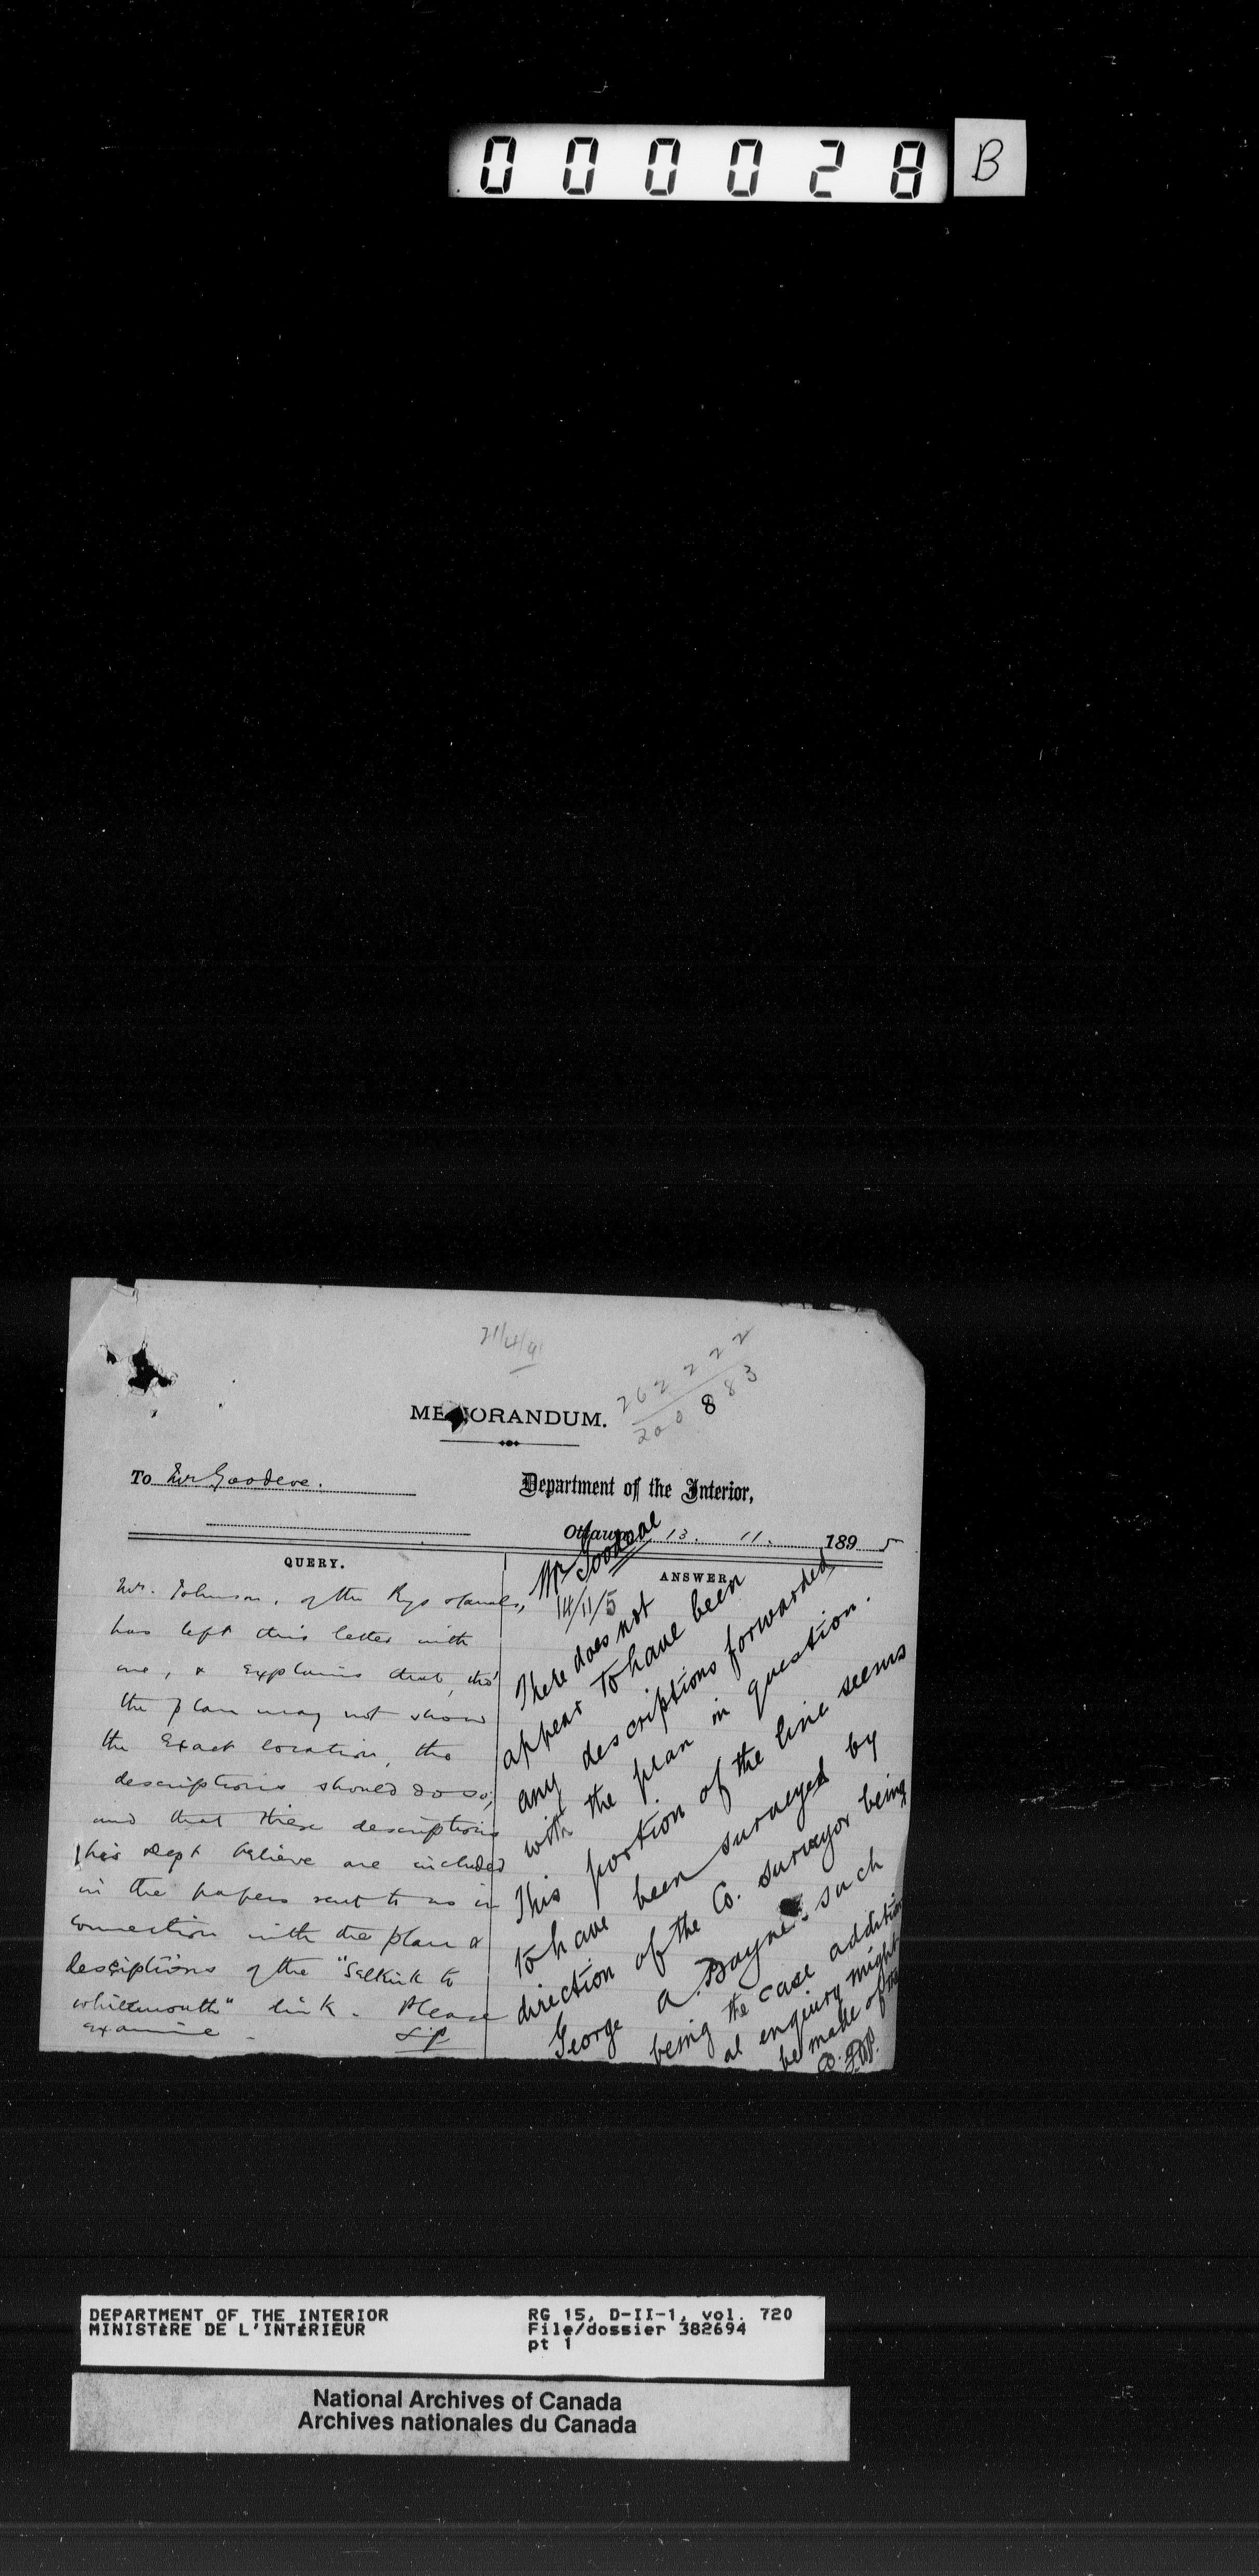 000028 B
21/4/9
262222
200883
MEMORANDUM.
To Mr Goodeve.
Department of the Interior,
Ottawa 13. 11. 1895
QUERY.
Mr. Johnson, of the Rys & Canals,
has left this letter with
me, & explains that, tho'
the plan may not show
the exact location, the
descriptions should do so;
and that these descriptions
his Dept believe are included
in the papers sent to us in
connection with the plan &
descriptions of the "Selkirk to
Whitemouth" link. Please
examine.
ANSWER
Mr Goodeve
14/11/5
There does not
appear to have been
any descriptions forwarded
with the plan in question.
This portion of the line seems
to have been surveyed by
direction of the Co. surveyor being
George A. Bayne. such
being the case addition
al enquiry might
be made of the
DEPARTMENT OF THE INTERIOR
MINISTÈRE DE L'INTÉRIEUR
RG 15, D-II-1, vol. 720
File/dossier 382694
pt 1
National Archives of Canada
Archives nationales du Canada